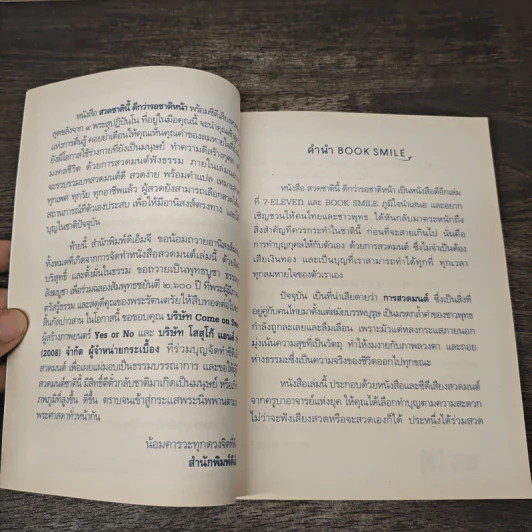 หนังสือ สวดชาตินี้ ดีกว่ารอชาติหน้า พร้อมซีดีเสียงสวด
สุดขลังจาก ๙ พระสุปฏิปันโน ที่อยู่ในมือคุณนี้ จะนำคุณเข้า
แห่งการตื่นรู้ คอยย้ำเตือนให้คุณเห็นคุณค่าของลมหายใจที่
ยังมีโอกาสใช้ร่างกายที่ยังเป็นมนุษย์ ทำความดีสร้างกุศล
มงคลชีวิต ด้วยการสวดมนต์ฟังธรรม ภายในเล่มนอก
จะรวบรวมบทสวดมนต์ดี สวดง่าย พร้อมคำแปล เหมาะ
ทุกเพศ ทุกวัย ทุกอาชีพแล้ว ผู้สวดยังสามารถเลือกสวดใ
สถานการณ์ที่ตัวเองประสบ เพื่อให้มีอานิสงส์ตรงทาง และ
บุญในชาติปัจจุบัน
ท้ายนี้ สำนักพิมพ์ดีเอ็มจี ขอน้อมถวายอานิสงส์
ทั้งหมดที่เกิดจากการจัดทำหนังสือสวดมนต์เล่มนี้ ด้วย
บริสุทธิ์ และตั้งมั่นในธรรม ขอถวายเป็นพุทธบูชา ธรรม
สังฆบูชา เพื่อร่วมฉลองสัมพุทธชยันตี ๒,๖๐๐ ปี ที่พระผู้มี
ตรัสรู้ธรรม และสดุดีคุณของพระรัตนตรัยให้สืบทอดต่อไป
สิ้นกัลปาวสาน ในโอกาสนี้ ขอขอบคุณ บริษัท Come on Sw
ผู้สร้างภาพยนตร์ Yes or No และ บริษัท โสสุโก้ แอนด์
(2008) จำกัด ผู้จำหน่ายกระเบื้อง ที่ร่วมบุญจัดทำซีดี
สวดมนต์ เพื่อเผยแผ่มอบเป็นธรรมบรรณาการ และขอให้ผู้
สวดมนต์ชาตินี้ มีสิทธิ์ดีที่วกลับชาติมาเกิดเป็นมนุษย์ หรือ
ภพภูมิที่สูงขึ้น ดีขึ้น ตราบจนเข้าสู่กระแสพระนิพพานตาม
พระศาสดาทั่วหน้ากัน
น้อมคารวะทุกดวงจิต
สำนักพิมพ์ดีเ
คำนำ BOOK SMILE
หนังสือ สวดชาตินี้ ดีกว่ารอชาติหน้า เป็นหนังสือดีอีกเล่ม
ที่ 7-ELEVEn และ BOOK SMILE ภูมิใจนำเสนอ และอยาก
เชิญชวนให้คนไทยและชาวพุทธ ได้หันกลับมาตระหนักถึง
สิ่งสำคัญที่ควรกระทำในชาตินี้ ก่อนที่จะสายเกินไป นั่นคือ
การทำบุญกุศลให้กับตัวเอง ด้วยการสวดมนต์ ซึ่งไม่จำเป็นต้อง
เสียเงินทอง และเป็นบุญที่เราสามารถทำได้ทุกที่ ทุกเวลา
ทุกลมหายใจของตัวเราเอง
ปัจจุบัน เป็นที่น่าเสียดายว่า การสวดมนต์ ซึ่งเป็นสิ่งที่
อยู่คู่กับคนไทยมาตั้งแต่สมัยบรรพบุรุษ เป็นมรดกล้ำค่าของชาวพุทธ
กำลังถูกละเลยและลืมเลือน เพราะมัวแต่หลงกระแสภายนอก
มุ่งเน้นความสุขที่เป็นวัตถุ ทำให้งมงายกับภาพลวงตา และถอย
ห่างธรรมะซึ่งเป็นความจริงของชีวิตออกไปทุกขณะ
หนังสือเล่มนี้ ประกอบด้วยหนังสือและซีดีเสียงสวดมนต์
จากครูบาอาจารย์แห่งยุค ให้คุณได้เลือกทำบุญตามความสะดวก
ไม่ว่าจะฟังเสียงสวดหรือจะสวดเองก็ได้ ประหนึ่งได้ร่วมสวด